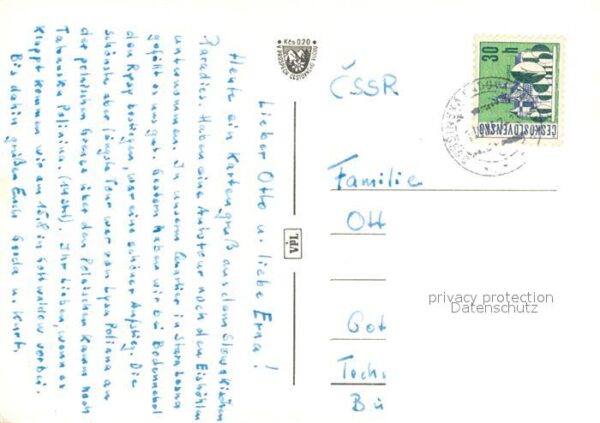 Lieber Otto u. liebe Erna!
Heute ein Kartengruß aus dem Slowakischen
Paradies. Haben eine Autotour nach den Eishöhlen
unternommen. In unserem Quartier in Stara Lesna
gefällt es uns gut. Gestern haben wir bei Bodennebel
den Rysy bestiegen, war eine schöner Aufstieg. Die
schönste aber längste Tour war von Lysa Poliana an
der polnischen Grenze über den Polnischen Kamm nach
Tatranska Polianka (14 Std.). Ihr Lieben, wenn es
klappt kommen wir am 15.8 in Gottwaldov vorbei.
Bis dahin grüßen Euch Gerda u. Kurt.
Kčs 0,20
VPL
ČSSR
Familie
Ott
Got
Tsch.
Bu
30 h
ČESKOSLOVENSKO
privacy protection
Datenschutz